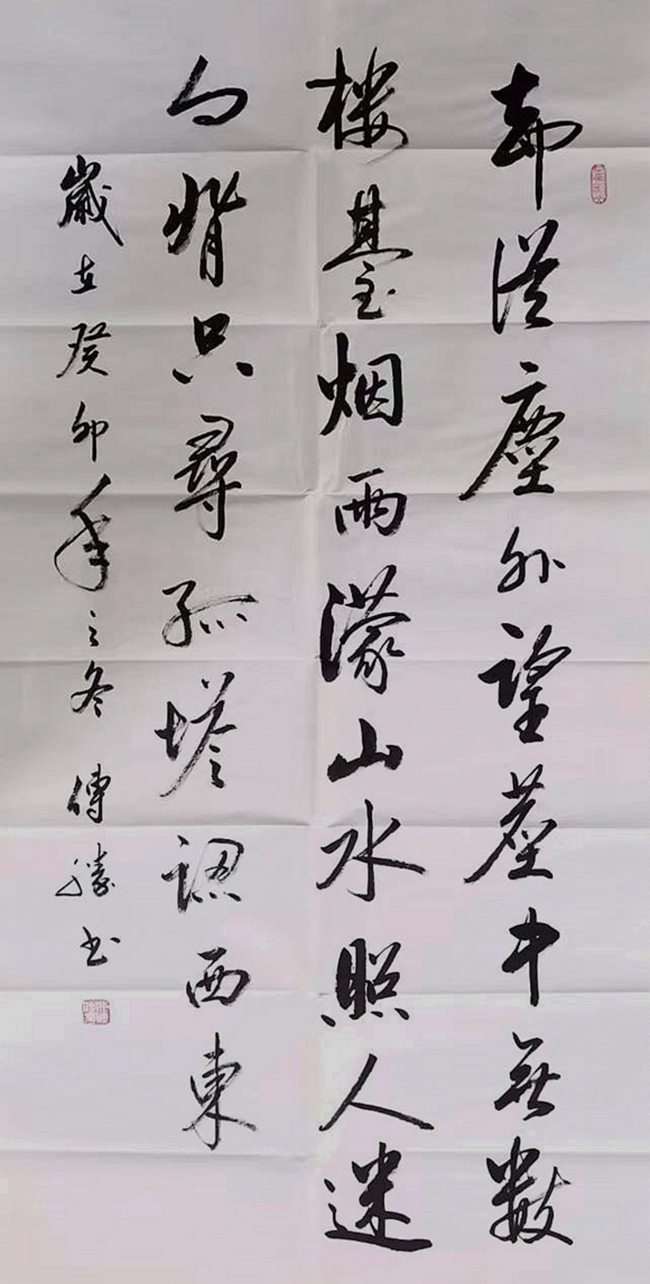 却從塵外望塵中無數
樓臺烟雨濛山水照人迷
向背只尋孤塔認西東
歲在癸卯年之冬傅勝書